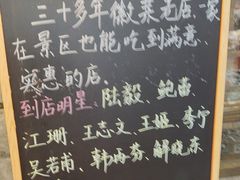 三十多年徽菜老店.一家
在景区也能吃到满意.
实惠的店.
到店明星.陆毅.鲍蕾.
江珊.王志文.王姬.李宁
吴若甫.韩再芬.解晓东